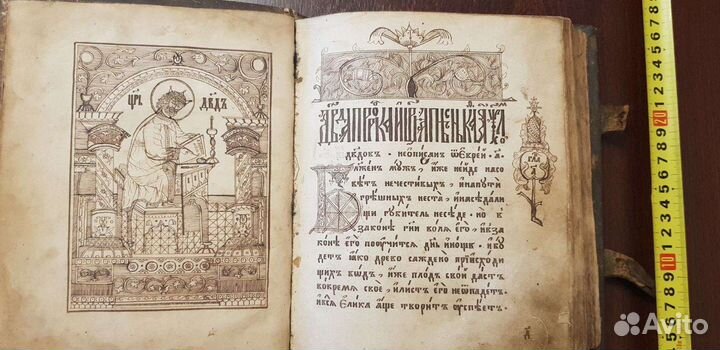 ЦРЬ ДВДЪ
дв҃довъ · неѡписанъ ѿ еврей · а҃ ·
Блаженъ мужъ, иже не иде на со
вѣтъ нечестивыхъ, и на пути
грѣшныхъ не ста, и на сѣдали
щи губитель не сѣде · но в
законе гн҃и воля его, и в за
конѣ его поучится дн҃ь и нощь · и бу
детъ ꙗко древо саждено при исходи
щихъ водъ, иже плодъ свой дастъ
во время свое, и листъ его не ѿпадетъ ·
и вся елика аще творитъ успѣетъ ·
гла
а
5 6 7 8 9 10 1 2 3 4 5 6 7 8 9 20 1 2 3 4 5 6 7 8
Avito